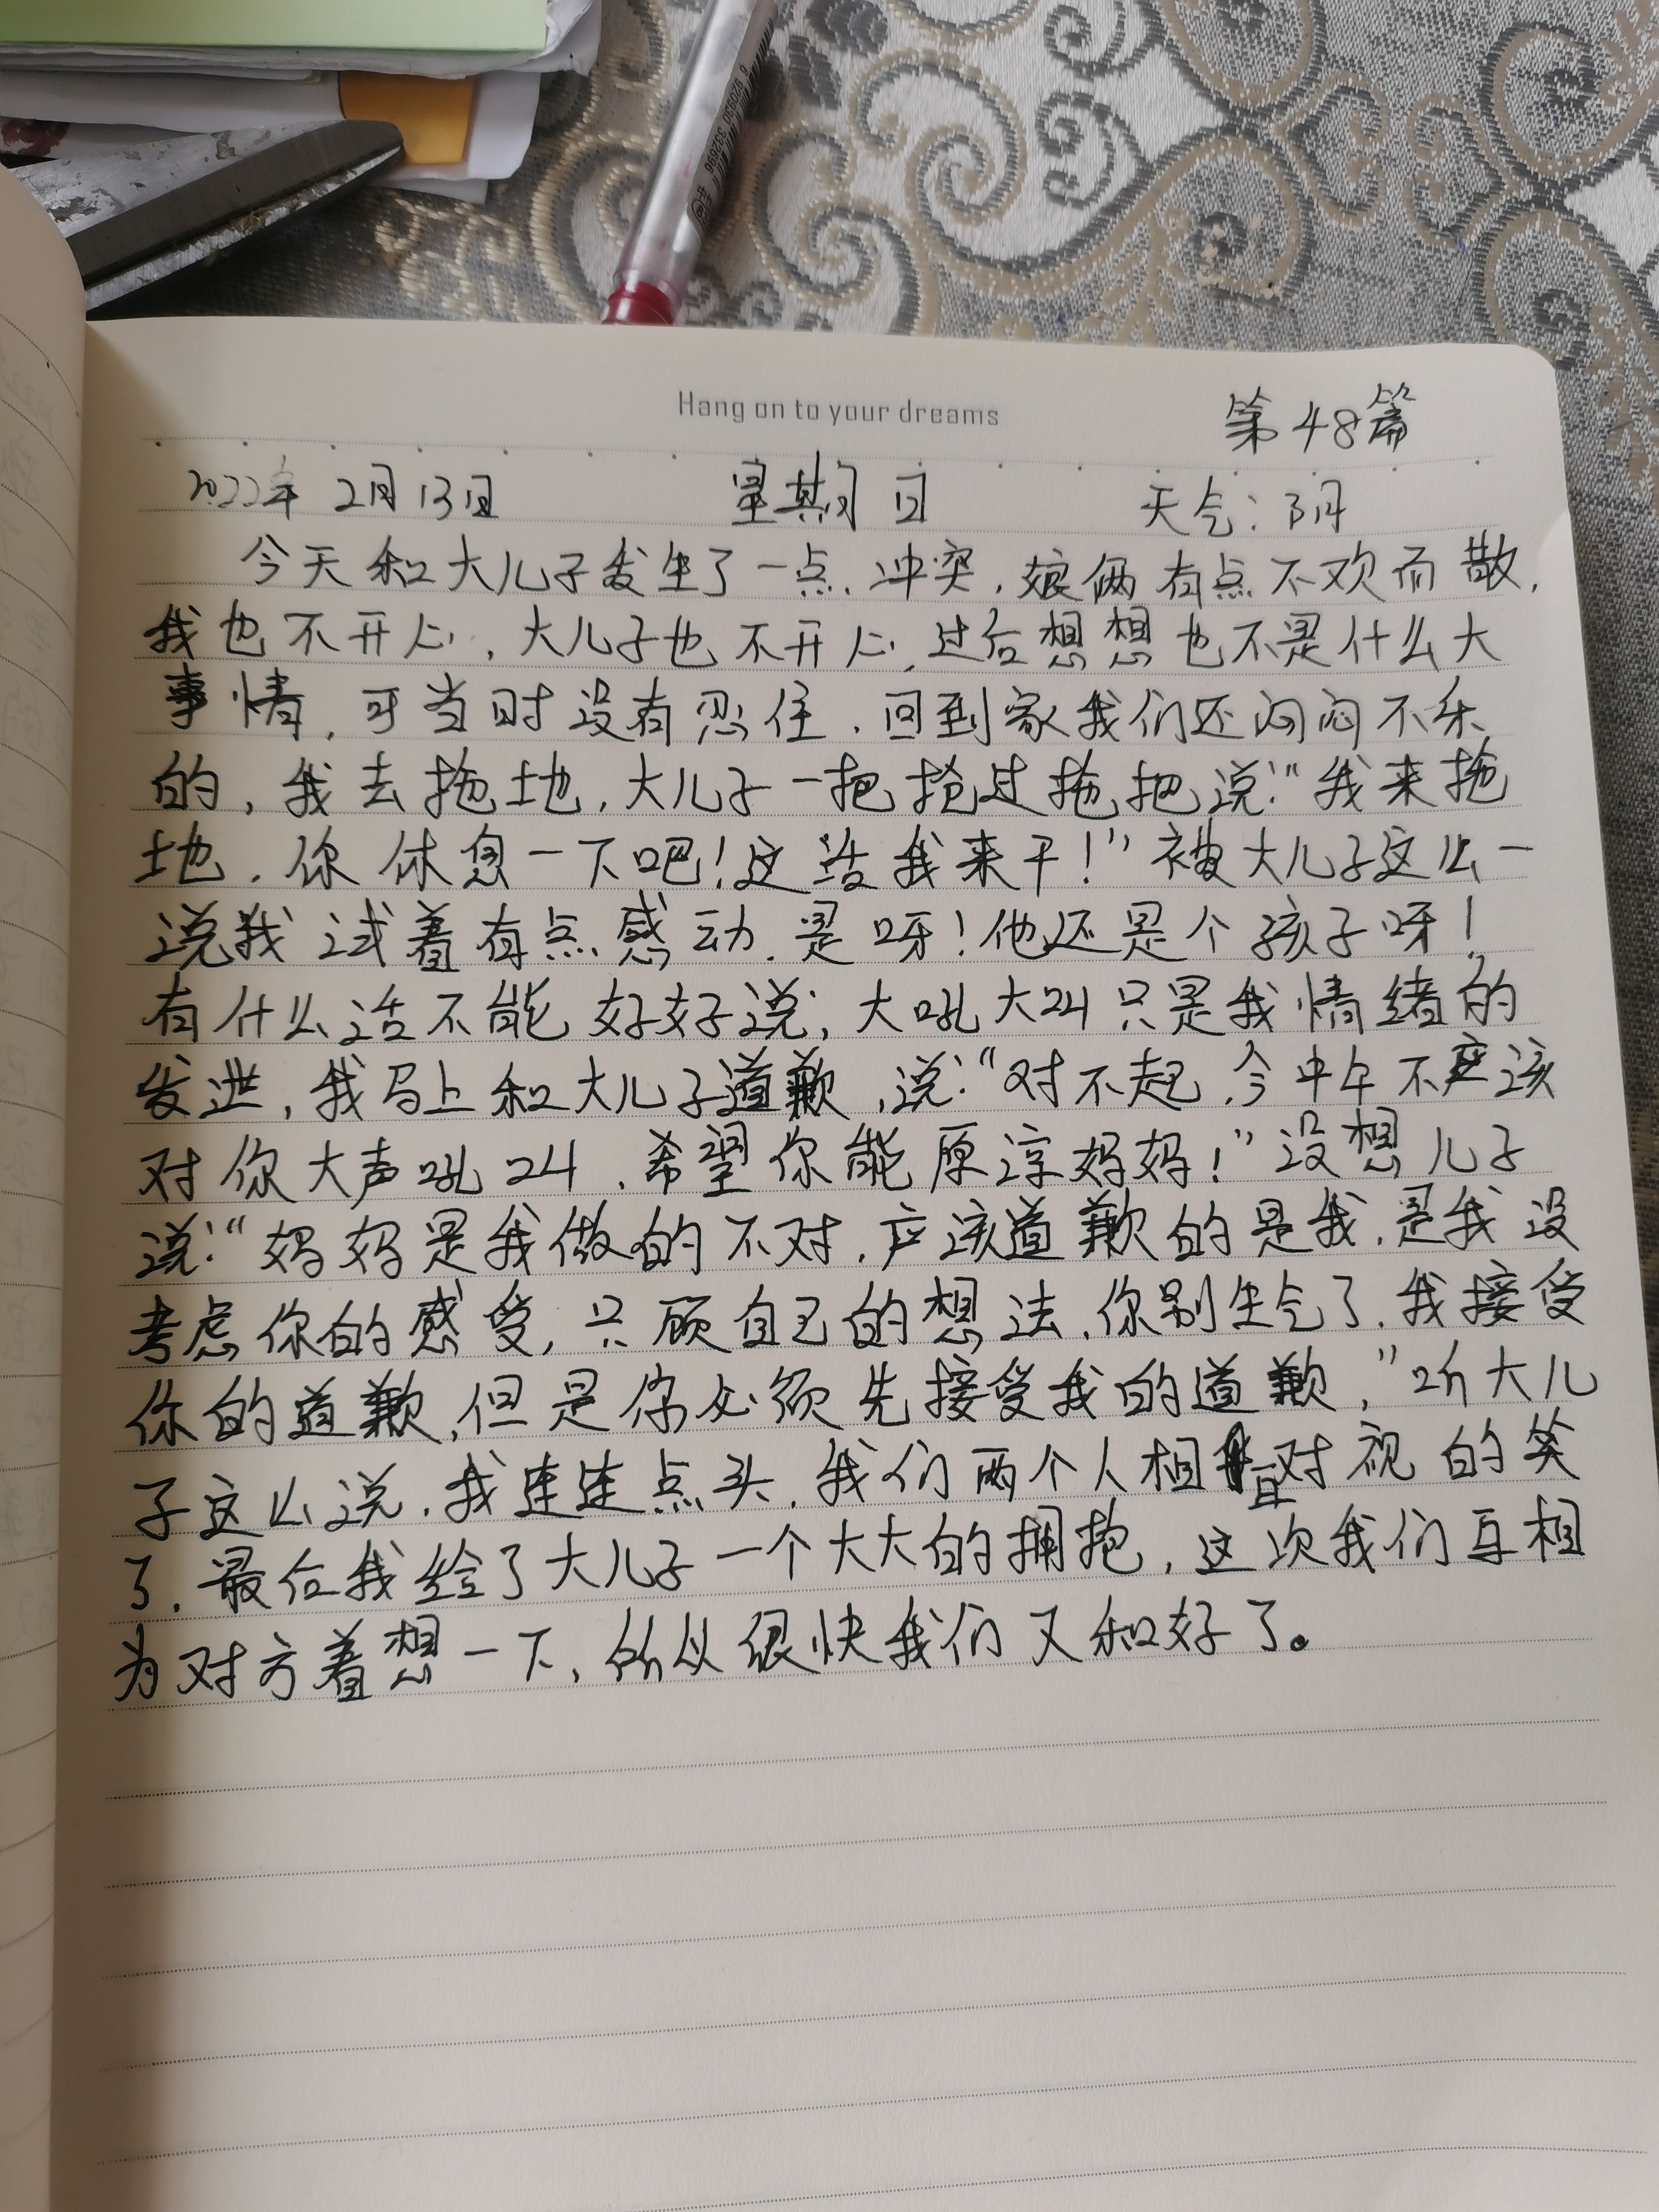 Hang on to your dreams
第48篇
2022年2月13日 星期日 天气：阴
今天和大儿子发生了一点冲突，娘俩有点不欢而散，
我也不开心，大儿子也不开心，过后想想也不是什么大
事情，可当时没有忍住，回到家我们还闷闷不乐
的，我去拖地，大儿子一把抢过拖把说：“我来拖
地，你休息一下吧！这活我来干！”被大儿子这么一
说我试着有点感动，是呀！他还是个孩子呀！
有什么话不能好好说，大吼大叫只是我情绪的
发泄，我马上和大儿子道歉，说：“对不起，今中午不应该
对你大声吼叫，希望你能原谅妈妈！”没想儿子
说：“妈妈是我做的不对，应该道歉的是我，是我没
考虑你的感受，只顾自己的想法，你别生气了，我接受
你的道歉，但是你必须先接受我的道歉，”听大儿
子这么说，我连连点头，我们两个人相互对视的笑
了，最后我给了大儿子一个大大的拥抱，这次我们互相
为对方着想一下，所以很快我们又和好了。